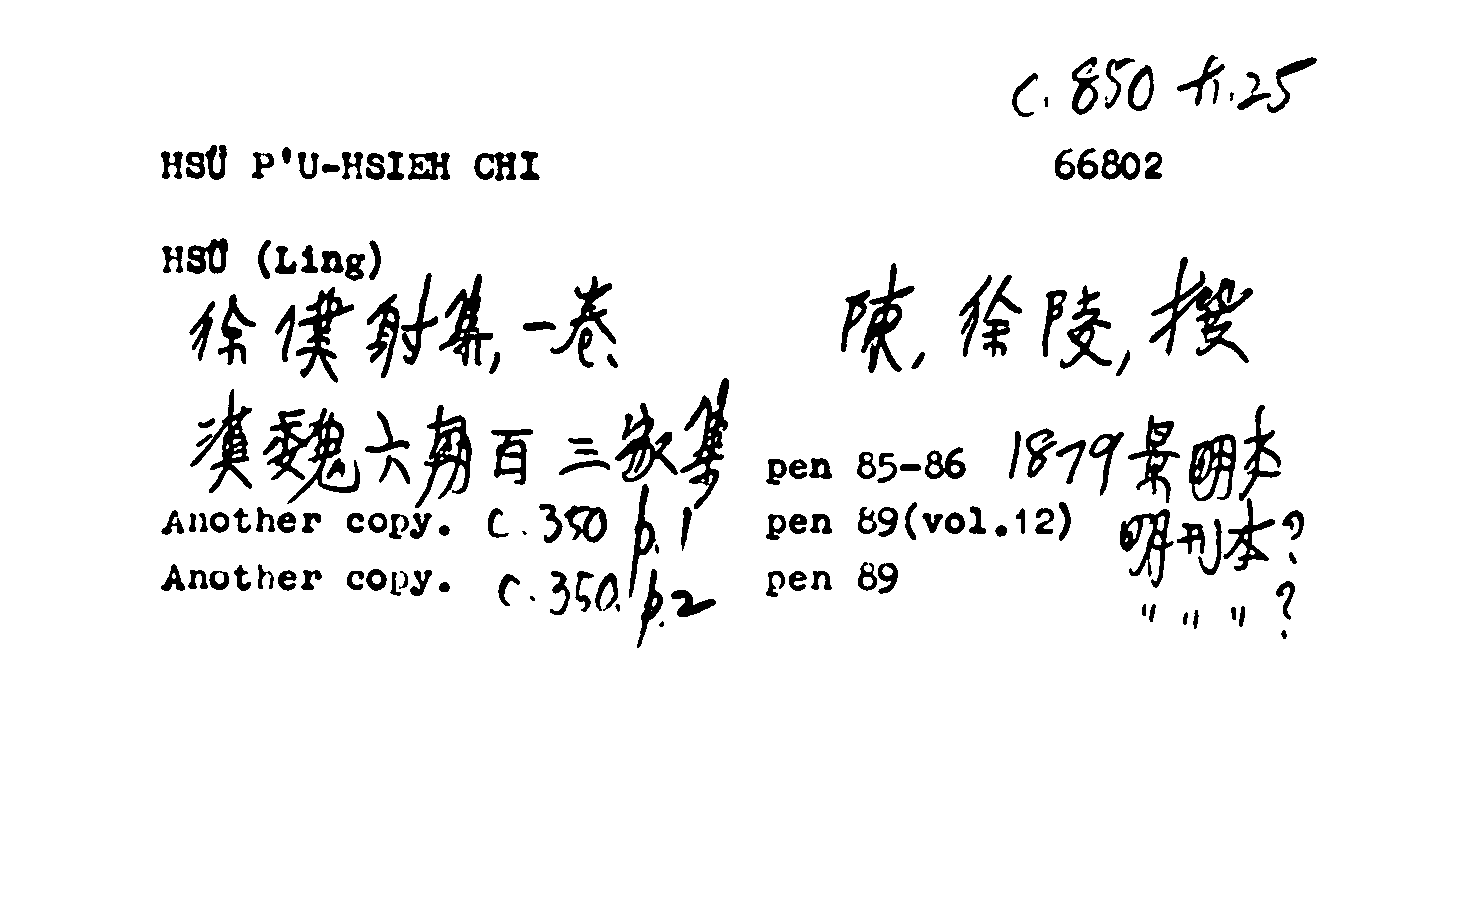 C. 850 t.25
HSÜ P'U-HSIEH CHI 66802
HSÜ (Ling)
徐僕射集,一卷、 陳,徐陵,撰
漢魏六朝百三家集 pen 85-86 1879景明本
Another copy. C.350 b.1 pen 89(vol.12) 明刊本?
Another copy. C.350. b.2 pen 89 " " " ?